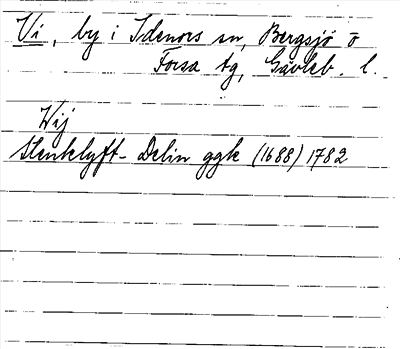 Vi, by i Idenors sn, Bergsjö o
Forsa tg, Gävleb. l.
Wij
Stenklyft - Delin ggk (1688) 1782